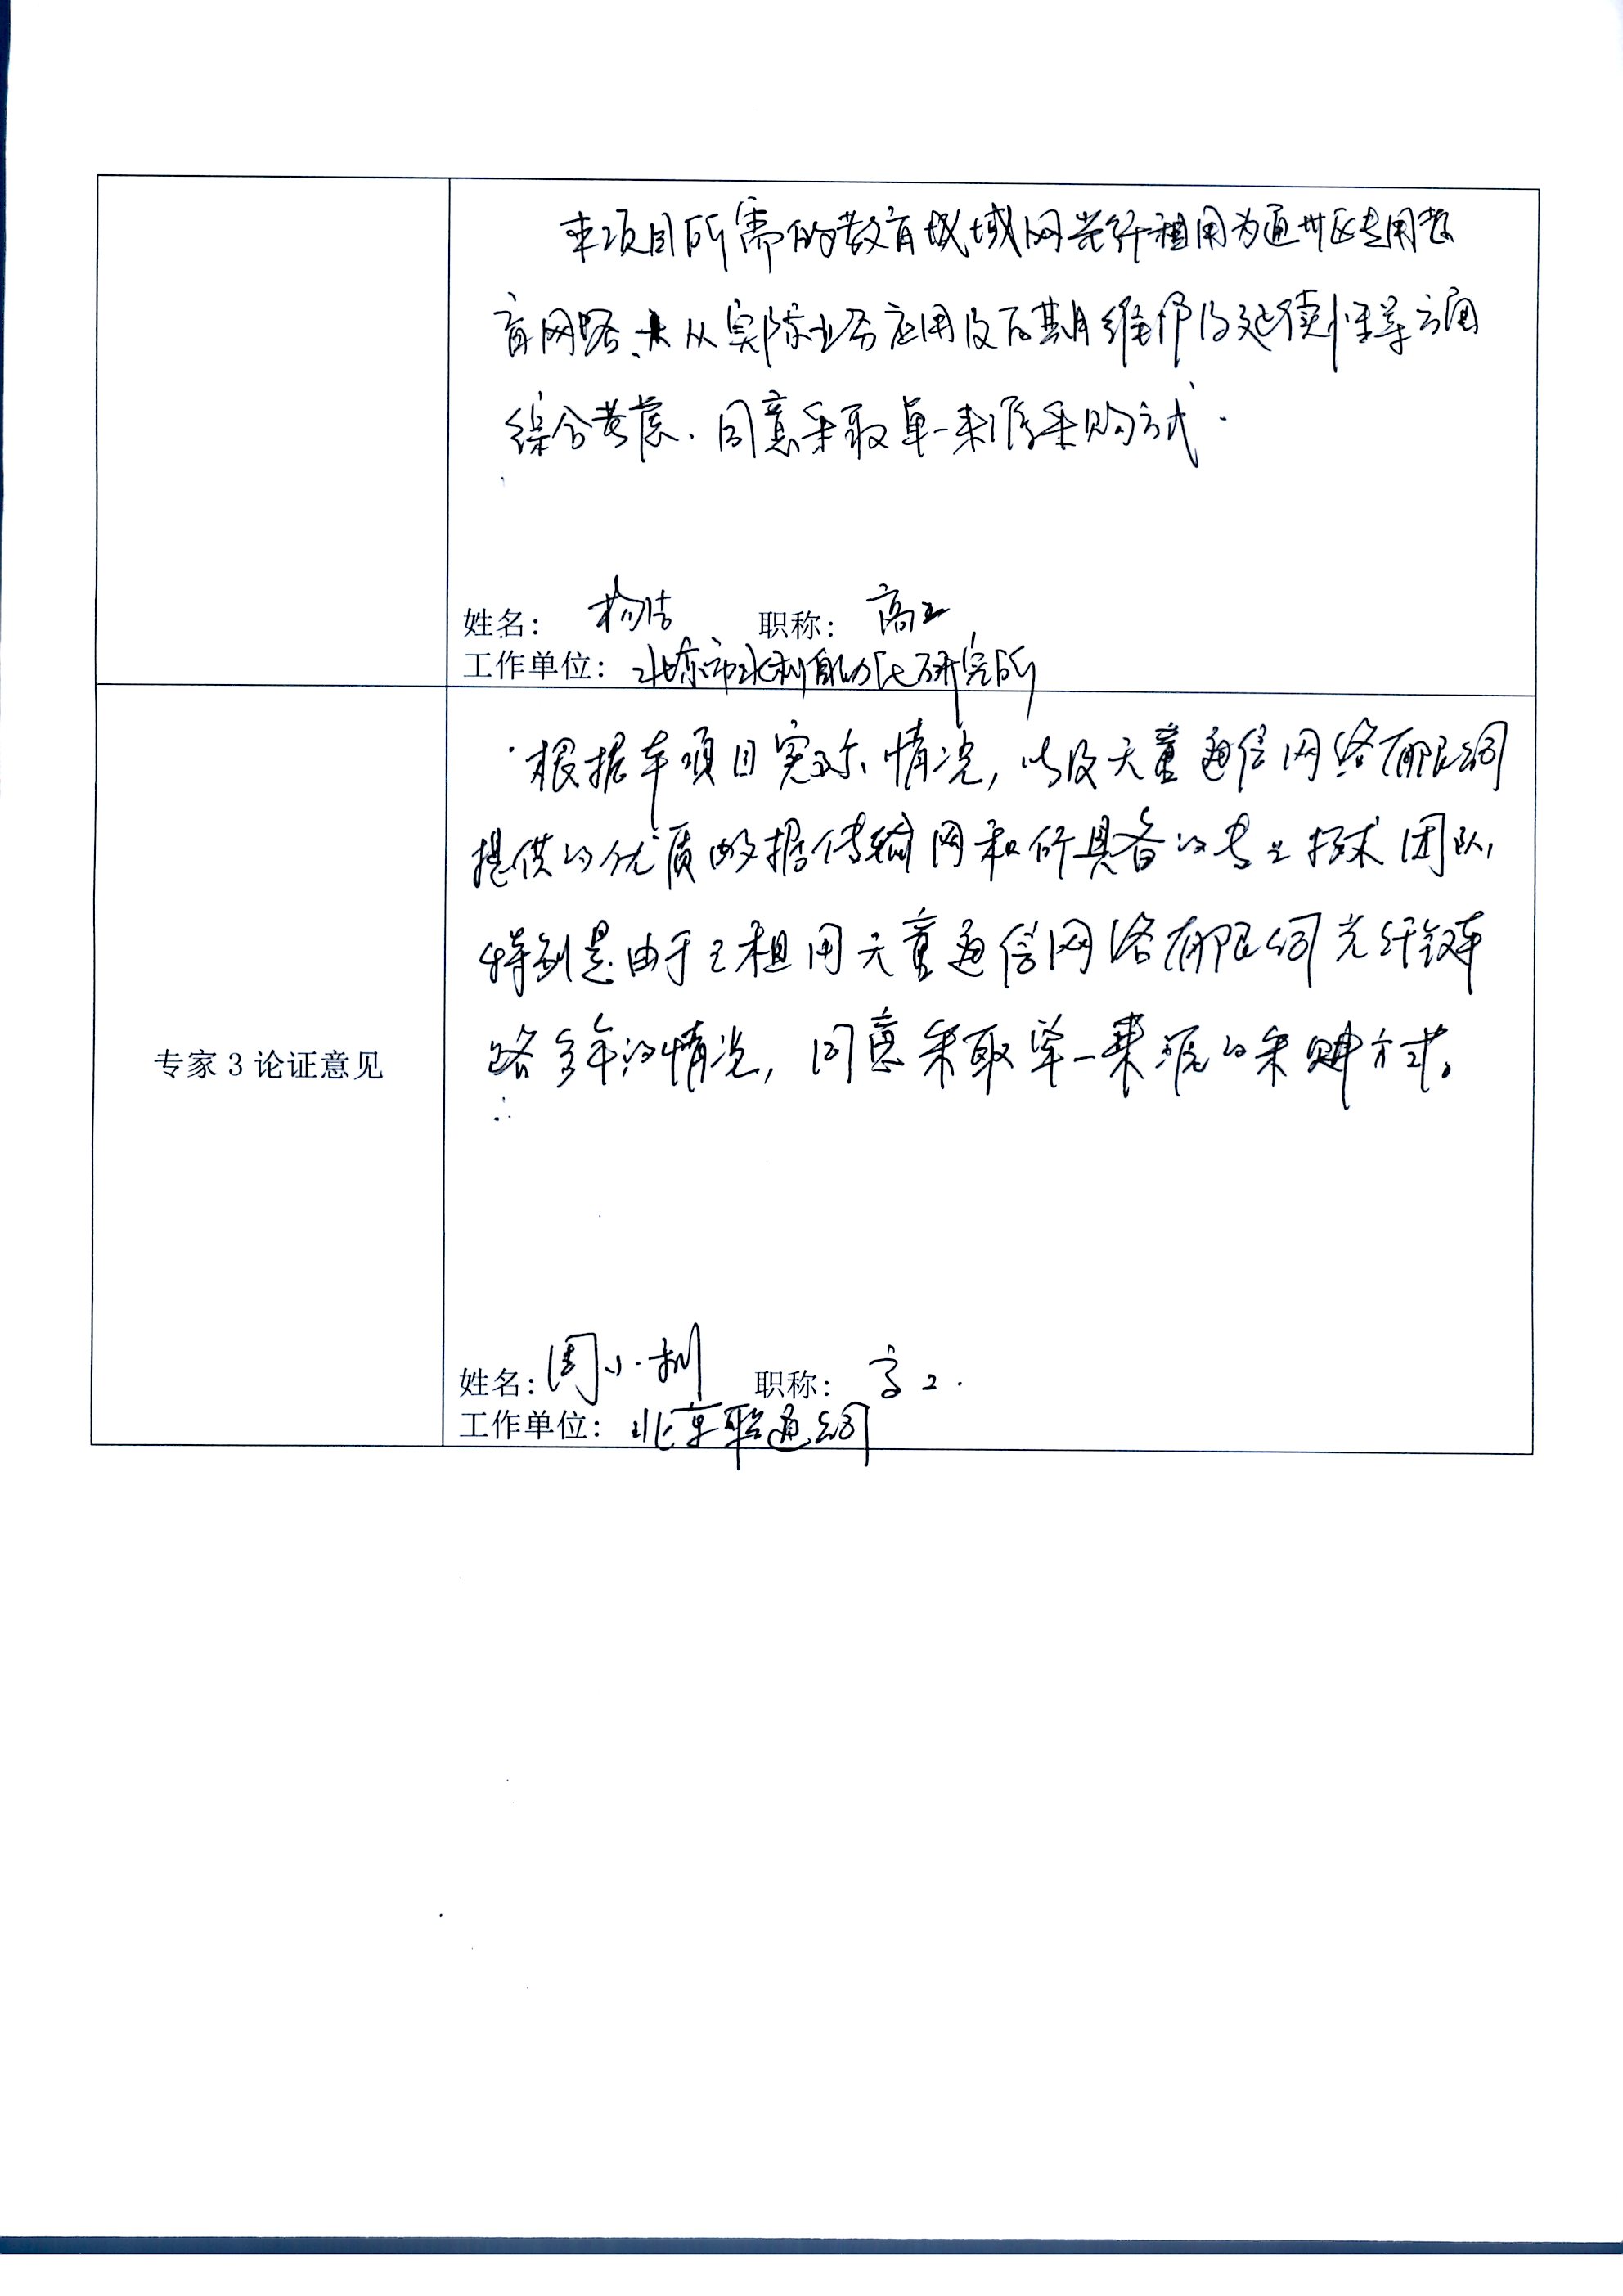 本项目所需的教育城域网光纤租用为通州区专用教
育网路、从实际业务应用及后期维护及延续性等方面
综合考虑、同意采取单一来源采购方式.
姓名： 杨洁 职称： 高工
工作单位： 北京市水利自动化研究所
根据本项目实际情况，以及天童通信网络有限公司
提供的优质数据传输网和所具备的专业技术团队，
专家 3 论证意见
特别是由于已租用天童通信网络有限公司光纤链
路多年的情况，同意采取单一来源的采购方式。
姓名： 周小 职称： 高工.
工作单位： 北京联通公司